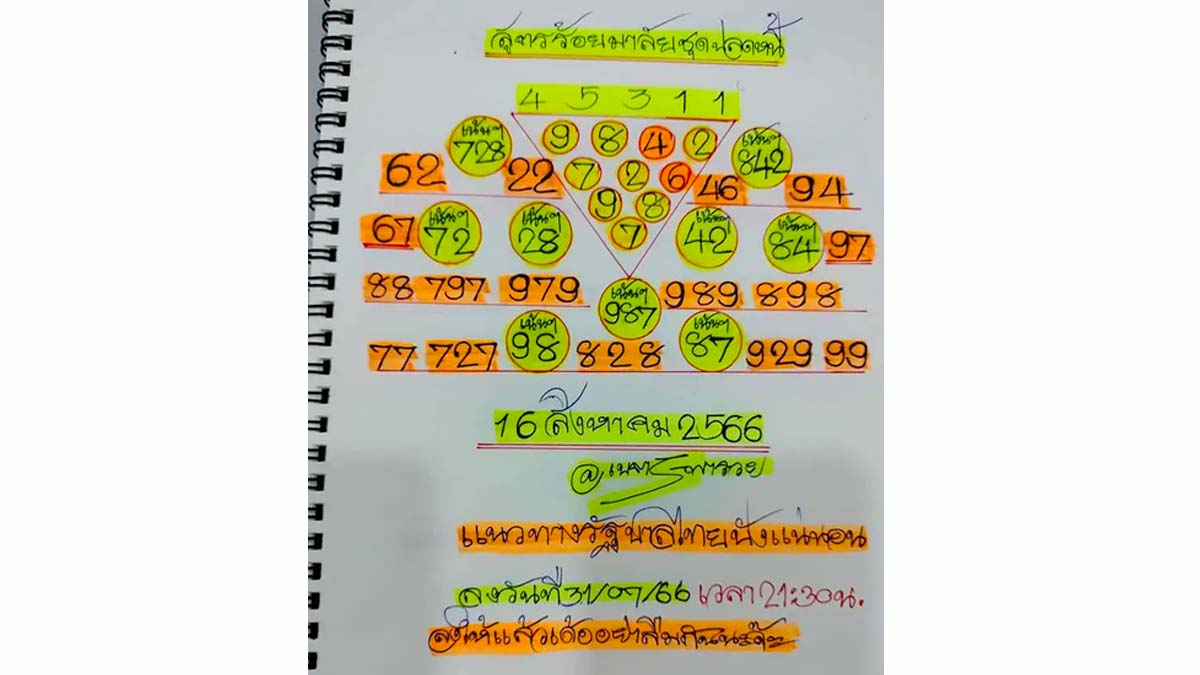 สูตรร้อยมาลัยชุดปลดหนี้
4 5 3 1 1
เน้นๆ 728 9 8 4 2 เน้นๆ 842
62 22 7 2 6 46 94
9 8
67 เน้นๆ 72 เน้นๆ 28 7 เน้นๆ 42 เน้นๆ 84 97
88 797 979 เน้นๆ 987 989 898
77 727 เน้นๆ 98 828 เน้นๆ 87 929 99
16 สิงหาคม 2566
แนวทางรัฐบาลไทยปังแน่นอน
ลงวันที่ 31/07/66 เวลา 21:30น.
ลงให้แล้วเด้ออย่าลืมกันนะ